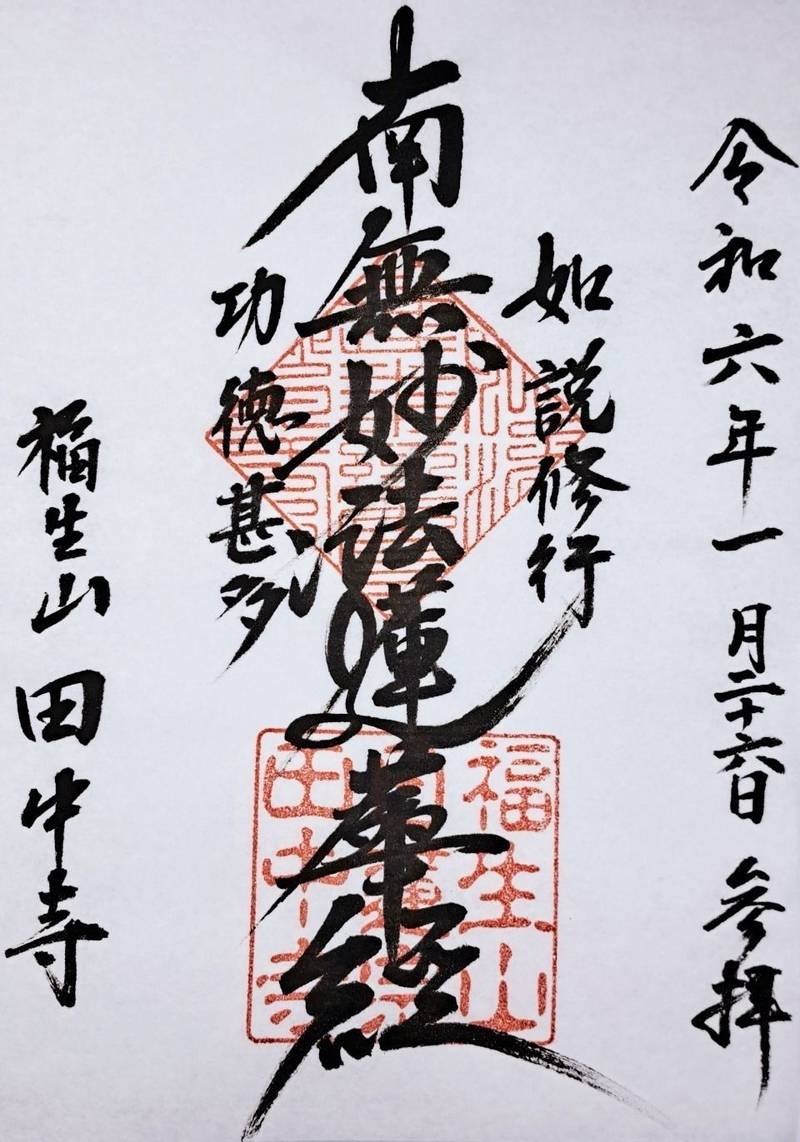 令和六年一月二十六日 参拝
如説修行
南無妙法蓮華経
功徳甚多
福生山 田中寺
福生山
田中寺